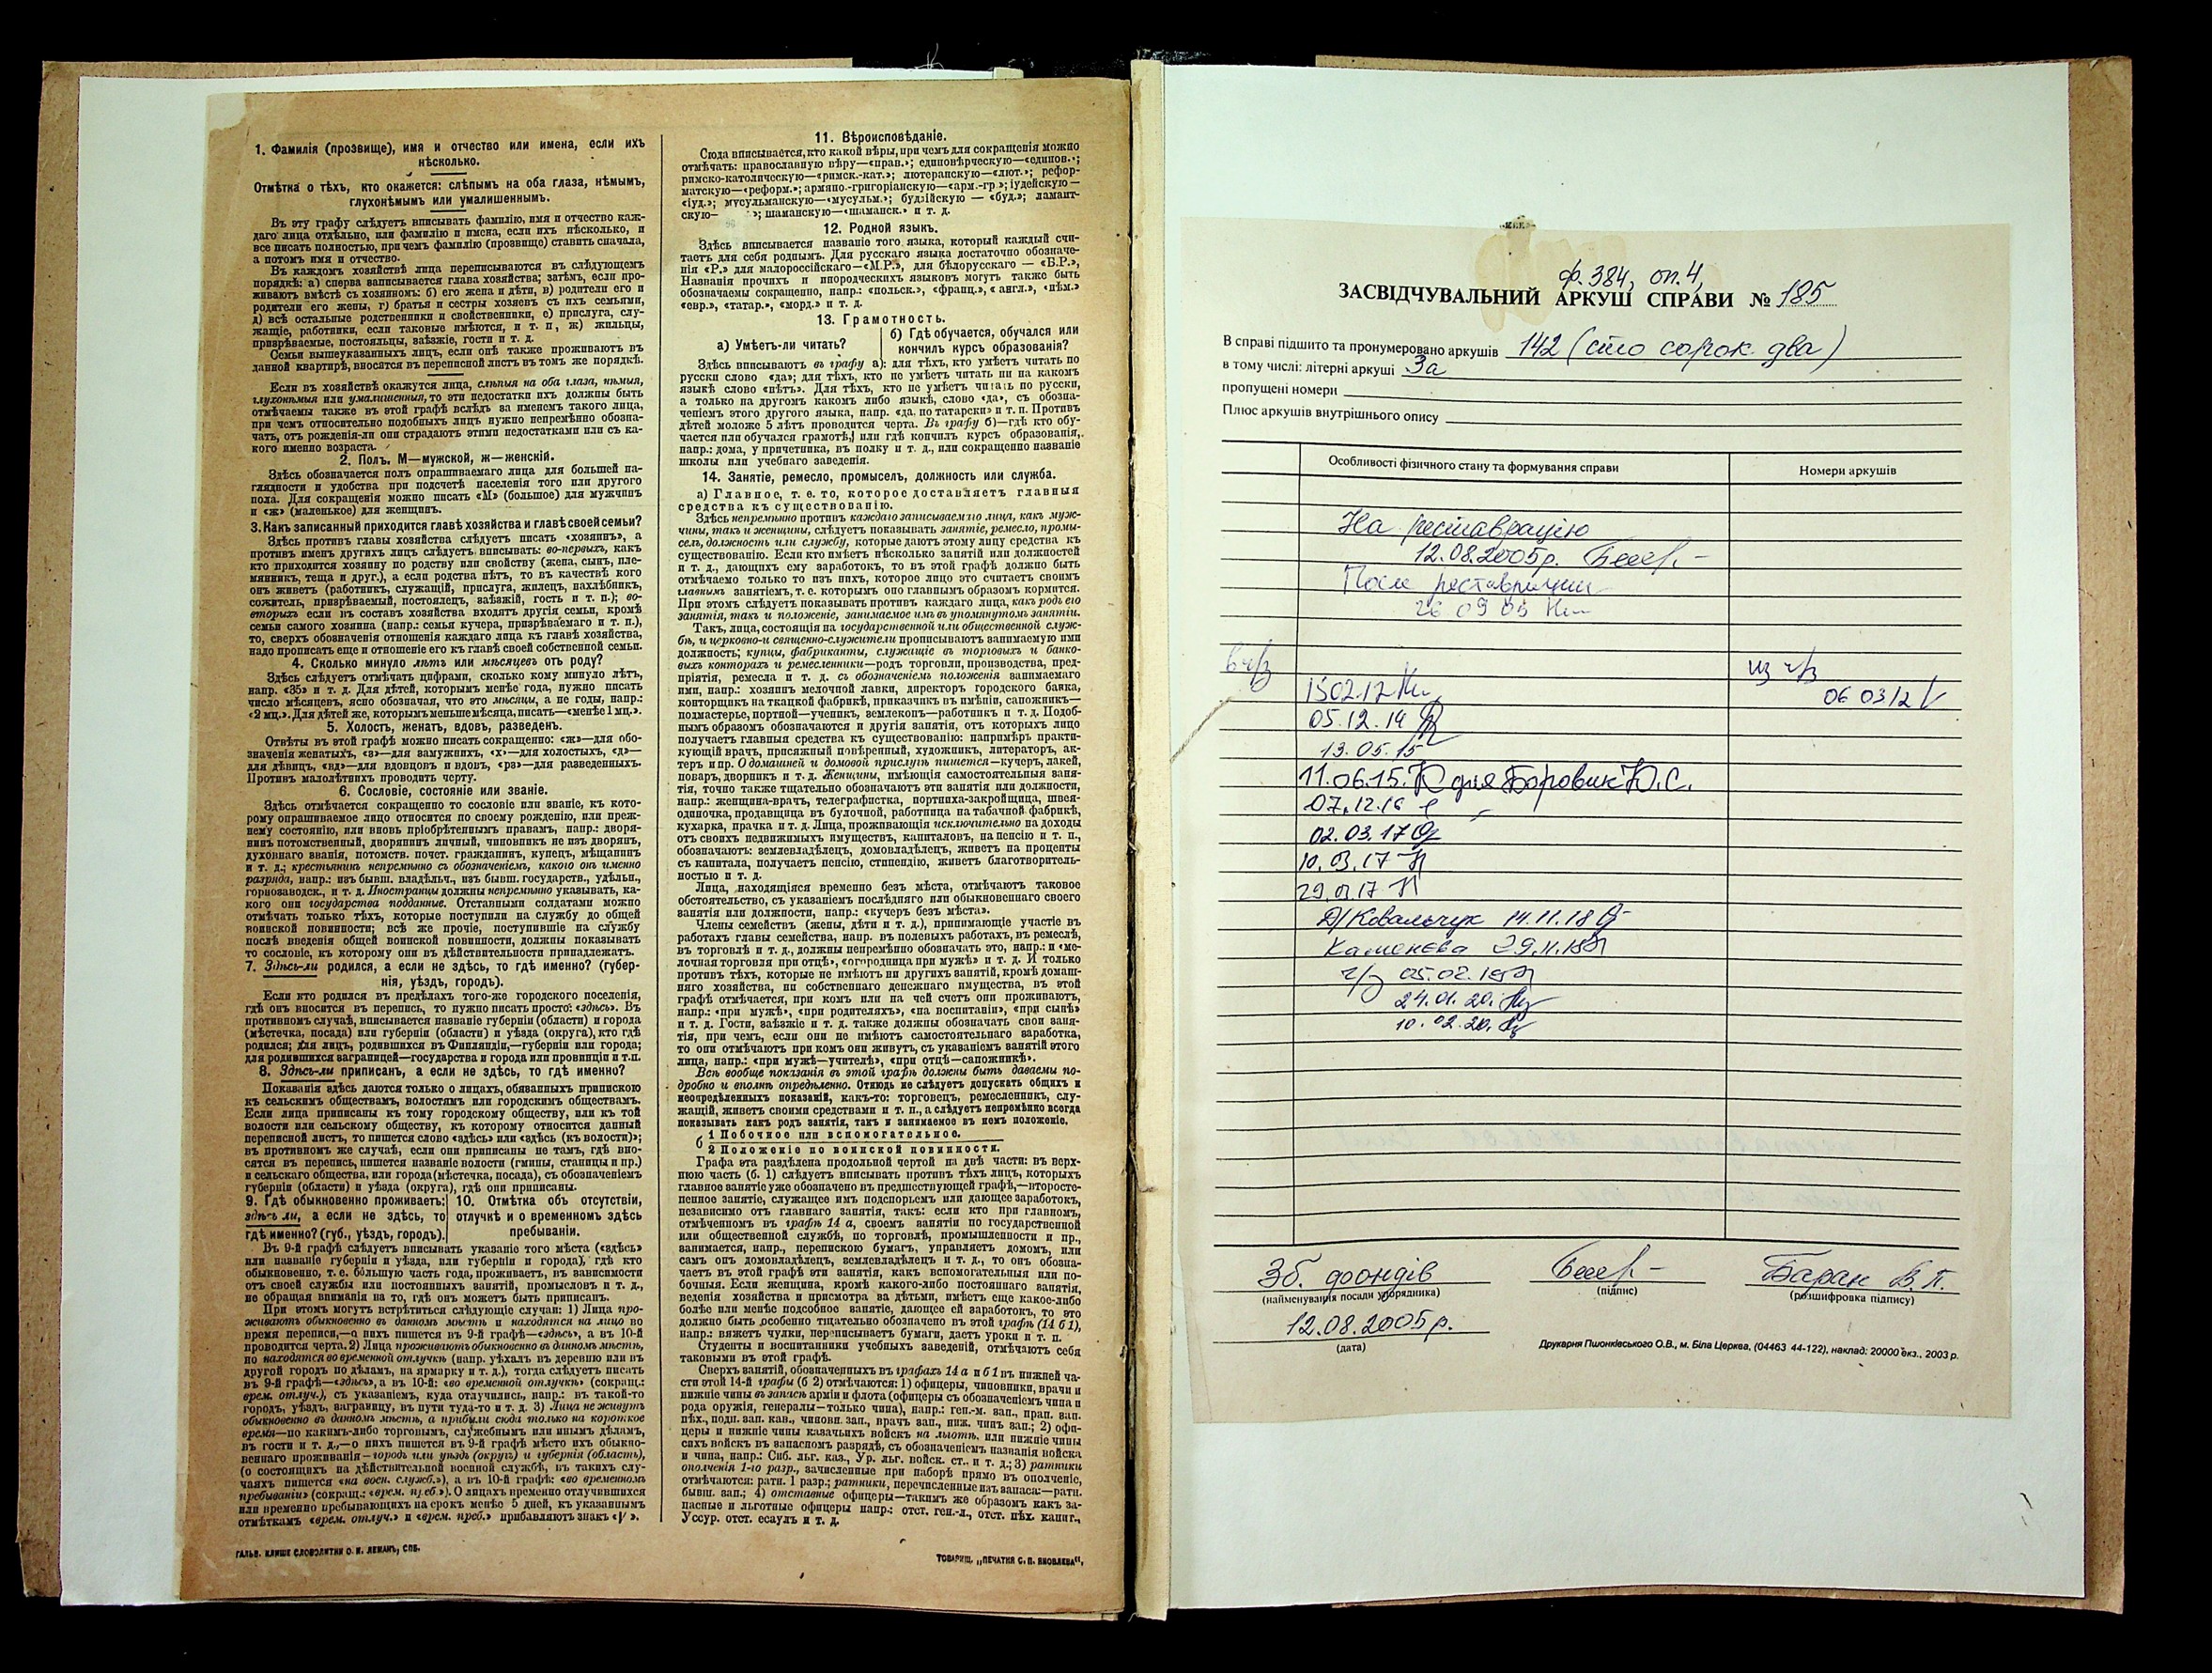 1. Фамилія (прозвище), имя и отчество или имена, если ихъ
нѣсколько.
Отмѣтка о тѣхъ, кто окажется: слѣпымъ на оба глаза, нѣмымъ,
глухонѣмымъ или умалишеннымъ.
Въ эту графу слѣдуетъ вписывать фамилію, имя и отчество каж-
даго лица отдѣльно, или фамилію и имена, если ихъ нѣсколько, и
все писать полностью, при чемъ фамилію (прозвище) ставить сначала,
а потомъ имя и отчество.
Въ каждомъ хозяйствѣ лица переписываются въ слѣдующемъ
порядкѣ: а) сперва записывается глава хозяйства; затѣмъ, если про-
живаютъ вмѣстѣ съ хозяиномъ: б) его жена и дѣти, в) родители его и
родители его жены, г) братья и сестры хозяевъ съ ихъ семьями,
д) всѣ остальные родственники и свойственники, е) прислуга, слу-
жащіе, работники, если таковые имѣются, и т. п., ж) жильцы,
призрѣваемые, постояльцы, заѣзжіе, гости и т. д.
Семьи вышеуказанныхъ лицъ, если онѣ также проживаютъ въ
данной квартирѣ, вносятся въ переписной листъ въ томъ же порядкѣ.
Если въ хозяйствѣ окажутся лица, слѣпыя на оба глаза, нѣмыя,
глухонѣмыя или умалишенныя, то эти недостатки ихъ должны быть
отмѣчаемы также въ этой графѣ вслѣдъ за именемъ такого лица,
при чемъ относительно подобныхъ лицъ нужно непремѣнно обозна-
чать, отъ рожденія-ли они страдаютъ этими недостатками или съ ка-
кого именно возраста.
2. Полъ. М—мужской, ж—женскій.
Здѣсь обозначается полъ опрашиваемаго лица для большей на-
глядности и удобства при подсчетѣ населенія того или другого
пола. Для сокращенія можно писать «М» (большое) для мужчинъ
и «ж» (маленькое) для женщинъ.
3. Какъ записанный приходится главѣ хозяйства и главѣ своей семьи?
Здѣсь противъ главы хозяйства слѣдуетъ писать «хозяинъ», а
противъ именъ другихъ лицъ слѣдуетъ вписывать: во-первыхъ, какъ
кто приходится хозяину по родству или свойству (жена, сынъ, пле-
мянникъ, теща и друг.), а если родства нѣтъ, то въ качествѣ кого
онъ живетъ (работникъ, служащій, прислуга, жилецъ, нахлѣбникъ,
сожитель, призрѣваемый, постоялецъ, заѣзжій, гость и т. п.); во-
вторыхъ если въ составъ хозяйства входятъ другія семьи, кромѣ
семьи самого хозяина (напр.: семья кучера, призрѣваемаго и т. п.),
то, сверхъ обозначенія отношенія каждаго лица къ главѣ хозяйства,
надо прописать еще и отношеніе его къ главѣ своей собственной семьи.
4. Сколько минуло лѣтъ или мѣсяцевъ отъ роду?
Здѣсь слѣдуетъ отмѣчать цифрами, сколько кому минуло лѣтъ,
напр. «35» и т. д. Для дѣтей, которымъ менѣе года, нужно писать
число мѣсяцевъ, ясно обозначая, что это мѣсяцы, а не годы, напр.:
«2 мц.». Для дѣтей же, которымъ меньше мѣсяца, писать—«менѣе 1 мц.».
5. Холостъ, женатъ, вдовъ, разведенъ.
Отвѣты въ этой графѣ можно писать сокращенно: «ж»—для обо-
значенія женатыхъ, «з»—для замужнихъ, «х»—для холостыхъ, «д»—
для дѣвицъ, «вд»—для вдовцовъ и вдовъ, «рз»—для разведенныхъ.
Противъ малолѣтнихъ проводить черту.
6. Сословіе, состояніе или званіе.
Здѣсь отмѣчается сокращенно то сословіе или званіе, къ кото-
рому опрашиваемое лицо относится по своему рожденію, или преж-
нему состоянію, или вновь пріобрѣтеннымъ правамъ, напр.: дворя-
нинъ потомственный, дворянинъ личный, чиновникъ не изъ дворянъ,
духовнаго званія, потомств. почет. гражданинъ, купецъ, мѣщанинъ
и т. д.; крестьянинъ непремѣнно съ обозначеніемъ, какого онъ именно
разряда, напр.: изъ бывш. владѣльч., изъ бывш. государств., удѣльн.,
горнозаводск., и т. д. Иностранцы должны непремѣнно указывать, ка-
кого они государства подданные. Отставными солдатами можно
отмѣчать только тѣхъ, которые поступили на службу до общей
воинской повинности; всѣ же прочіе, поступившіе на службу
послѣ введенія общей воинской повинности, должны показывать
то сословіе, къ которому они въ дѣйствительности принадлежатъ.
7. Здѣсь-ли родился, а если не здѣсь, то гдѣ именно? (губер-
нія, уѣздъ, городъ).
Если кто родился въ предѣлахъ того-же городского поселенія,
гдѣ онъ вносится въ перепись, то нужно писать просто: «здѣсь». Въ
противномъ случаѣ, вписывается названіе губерніи (области) и города
(мѣстечка, посада) или губерніи (области) и уѣзда (округа), кто гдѣ
родился; для лицъ, родившихся въ Финляндіи,—губерніи или города;
для родившихся заграницей—государства и города или провинціи и т.п.
8. Здѣсь-ли приписанъ, а если не здѣсь, то гдѣ именно?
Показанія здѣсь даются только о лицахъ, обязанныхъ припискою
къ сельскимъ обществамъ, волостямъ или городскимъ обществамъ.
Если лица приписаны къ тому городскому обществу, или къ той
волости или сельскому обществу, къ которому относится данный
переписной листъ, то пишется слово «здѣсь» или «здѣсь (къ волости)»;
въ противномъ же случаѣ, если они приписаны не тамъ, гдѣ вно-
сятся въ перепись, пишется названіе волости (гмины, станицы и пр.)
и сельскаго общества, или города (мѣстечка, посада), съ обозначеніемъ
губерніи (области) и уѣзда (округа), гдѣ они приписаны.
9. Гдѣ обыкновенно проживаетъ:
здѣсь ли, а если не здѣсь, то
гдѣ именно? (губ., уѣздъ, городъ).
10. Отмѣтка объ отсутствіи,
отлучкѣ и о временномъ здѣсь
пребываніи.
Въ 9-й графѣ слѣдуетъ вписывать указаніе того мѣста («здѣсь»
или названіе губерніи и уѣзда, или губерніи и города), гдѣ кто
обыкновенно, т. е. бо́льшую часть года, проживаетъ, въ зависимости
отъ своей службы или постоянныхъ занятій, промысловъ и т. д.,
не обращая вниманія на то, гдѣ онъ можетъ быть приписанъ.
При этомъ могутъ встрѣтиться слѣдующіе случаи: 1) Лица про-
живаютъ обыкновенно въ данномъ мѣстѣ и находятся на лицо во
время переписи,—о нихъ пишется въ 9-й графѣ—«здѣсь», а въ 10-й
проводится черта. 2) Лица проживаютъ обыкновенно въ данномъ мѣстѣ,
но находятся во временной отлучкѣ (напр. уѣхалъ въ деревню или въ
другой городъ по дѣламъ, на ярмарку и т. д.), тогда слѣдуетъ писать
въ 9-й графѣ—«здѣсь», а въ 10-й: «во временной отлучкѣ» (сокращ.:
врем. отлуч.), съ указаніемъ, куда отлучились, напр.: въ такой-то
городъ, уѣздъ, заграницу, въ пути туда-то и т. д. 3) Лица не живутъ
обыкновенно въ данномъ мѣстѣ, а прибыли сюда только на короткое
время—по какимъ-либо торговымъ, служебнымъ или инымъ дѣламъ,
въ гости и т. д.,—о нихъ пишется въ 9-й графѣ мѣсто ихъ обыкно-
веннаго проживанія—городъ или уѣздъ (округъ) и губернія (область),
(о состоящихъ на дѣйствительной военной службѣ, въ такихъ слу-
чаяхъ пишется «на воен. служб.»), а въ 10-й графѣ: «во временномъ
пребываніи» (сокращ.: «врем. преб.»). О лицахъ временно отлучившихся
или временно пребывающихъ на срокъ менѣе 5 дней, къ указаннымъ
отмѣткамъ «врем. отлуч.» и «врем. преб.» прибавляютъ знакъ «√».
ГАЛЬВ. КЛИШЕ СЛОВОЛИТНИ О. И. ЛЕМАНЪ, СПБ.
11. Вѣроисповѣданіе.
Сюда вписывается, кто какой вѣры, при чемъ для сокращенія можно
отмѣчать: православную вѣру—«прав.»; единовѣрческую—«единов.»;
римско-католическую—«римск.-кат.»; лютеранскую—«лют.»; рефор-
матскую—«реформ.»; армяно-григоріанскую—«арм.-гр.»; іудейскую—
«іуд.»; мусульманскую—«мусульм.»; буддійскую — «буд.»; ламаит-
скую— »; шаманскую—«шаманск.» и т. д.
12. Родной языкъ.
Здѣсь вписывается названіе того языка, который каждый счи-
таетъ для себя роднымъ. Для русскаго языка достаточно обозначе-
нія «Р.» для малороссійскаго—«М.Р.», для бѣлорусскаго — «Б.Р.»,
Названія прочихъ и инородческихъ языковъ могутъ также быть
обозначаемы сокращенно, напр.: «польск.», «франц.», «англ.», «нѣм.»
«евр.», «татар.», «морд.» и т. д.
13. Грамотность.
а) Умѣетъ-ли читать?
б) Гдѣ обучается, обучался или
кончилъ курсъ образованія?
Здѣсь вписываютъ въ графу а): для тѣхъ, кто умѣетъ читать по
русски слово «да»; для тѣхъ, кто не умѣетъ читать ни на какомъ
языкѣ слово «нѣтъ». Для тѣхъ, кто не умѣетъ читать по русски,
а только на другомъ какомъ либо языкѣ, слово «да», съ обозна-
ченіемъ этого другого языка, напр. «да, по татарски» и т. п. Противъ
дѣтей моложе 5 лѣтъ проводится черта. Въ графу б)—гдѣ кто обу-
чается или обучался грамотѣ, или гдѣ кончилъ курсъ образованія,
напр.: дома, у причетника, въ полку и т. д., или сокращенно названіе
школы или учебнаго заведенія.
14. Занятіе, ремесло, промыселъ, должность или служба.
а) Главное, т. е. то, которое доставляетъ главныя
средства къ существованію.
Здѣсь непремѣнно противъ каждаго записываемаго лица, какъ муж-
чины, такъ и женщины, слѣдуетъ показывать занятіе, ремесло, промы-
селъ, должность или службу, которые даютъ этому лицу средства къ
существованію. Если кто имѣетъ нѣсколько занятій или должностей
и т. д., дающихъ ему заработокъ, то въ этой графѣ должно быть
отмѣчаемо только то изъ нихъ, которое лицо это считаетъ своимъ
главнымъ занятіемъ, т. е. которымъ оно главнымъ образомъ кормится.
При этомъ слѣдуетъ показывать противъ каждаго лица, какъ родъ его
занятія, такъ и положеніе, занимаемое имъ въ упомянутомъ занятіи.
Такъ, лица, состоящія на государственной или общественной служ-
бѣ, и церковно-и священно-служители прописываютъ занимаемую ими
должность; купцы, фабриканты, служащіе въ торговыхъ и банко-
выхъ конторахъ и ремесленники—родъ торговли, производства, пред-
пріятія, ремесла и т. д. съ обозначеніемъ положенія занимаемаго
ими, напр.: хозяинъ мелочной лавки, директоръ городского банка,
конторщикъ на ткацкой фабрикѣ, приказчикъ въ имѣніи, сапожникъ—
подмастерье, портной—ученикъ, землекопъ—работникъ и т. д. Подоб-
нымъ образомъ обозначаются и другія занятія, отъ которыхъ лицо
получаетъ главныя средства къ существованію: напримѣръ практи-
кующій врачъ, присяжный повѣренный, художникъ, литераторъ, ак-
теръ и пр. О домашней и домовой прислугѣ пишется—кучеръ, лакей,
поваръ, дворникъ и т. д. Женщины, имѣющія самостоятельныя заня-
тія, точно также тщательно обозначаютъ эти занятія или должности,
напр.: женщина-врачъ, телеграфистка, портниха-закройщица, швея-
одиночка, продавщица въ булочной, работница на табачной фабрикѣ,
кухарка, прачка и т. д. Лица, проживающія исключительно на доходы
отъ своихъ недвижимыхъ имуществъ, капиталовъ, на пенсію и т. п.,
обозначаютъ: землевладѣлецъ, домовладѣлецъ, живетъ на проценты
съ капитала, получаетъ пенсію, стипендію, живетъ благотворитель-
ностью и т. д.
Лица, находящіяся временно безъ мѣста, отмѣчаютъ таковое
обстоятельство, съ указаніемъ послѣдняго или обыкновеннаго своего
занятія или должности, напр.: «кучеръ безъ мѣста».
Члены семействъ (жены, дѣти и т. д.), принимающіе участіе въ
работахъ главы семейства, напр. въ полевыхъ работахъ, въ ремеслѣ,
въ торговлѣ и т. д., должны непремѣнно обозначать это, напр.: и «ме-
лочная торговля при отцѣ», «огородница при мужѣ» и т. д. И только
противъ тѣхъ, которые не имѣютъ ни другихъ занятій, кромѣ домаш-
няго хозяйства, ни собственнаго денежнаго имущества, въ этой
графѣ отмѣчается, при комъ или на чей счетъ они проживаютъ,
напр.: «при мужѣ», «при родителяхъ», «на воспитаніи», «при сынѣ»
и т. д. Гости, заѣзжіе и т. д. также должны обозначать свои заня-
тія, при чемъ, если они не имѣютъ самостоятельнаго заработка,
то они отмѣчаютъ при комъ они живутъ, съ указаніемъ занятій этого
лица, напр.: «при мужѣ—учителѣ», «при отцѣ—сапожникѣ».
Всѣ вообще показанія въ этой графѣ должны быть даваемы по-
дробно и вполнѣ опредѣленно. Отнюдь не слѣдуетъ допускать общихъ и
неопредѣленныхъ показаній, какъ-то: торговецъ, ремесленникъ, слу-
жащій, живетъ своими средствами и т. п., а слѣдуетъ непремѣнно всегда
показывать какъ родъ занятія, такъ и занимаемое въ немъ положеніе.
б 1 Побочное или вспомогательное.
2 Положеніе по воинской повинности.
Графа эта раздѣлена продольной чертой на двѣ части: въ верх-
нюю часть (б. 1) слѣдуетъ вписывать противъ тѣхъ лицъ, которыхъ
главное занятіе уже обозначено въ предшествующей графѣ,—второсте-
пенное занятіе, служащее имъ подспорьемъ или дающее заработокъ,
независимо отъ главнаго занятія, такъ: если кто при главномъ,
отмѣченномъ въ графѣ 14 а, своемъ занятіи по государственной
или общественной службѣ, по торговлѣ, промышленности и пр.,
занимается, напр., перепискою бумагъ, управляетъ домомъ, или
самъ онъ домовладѣлецъ, землевладѣлецъ и т. д., то онъ обозна-
чаетъ въ этой графѣ эти занятія, какъ вспомогательныя или по-
бочныя. Если женщина, кромѣ какого-либо постояннаго занятія,
веденія хозяйства и присмотра за дѣтьми, имѣетъ еще какое-либо
болѣе или менѣе подсобное занятіе, дающее ей заработокъ, то это
должно быть особенно тщательно обозначено въ этой графѣ (14 б 1),
напр.: вяжетъ чулки, переписываетъ бумаги, даетъ уроки и т. п.
Студенты и воспитанники учебныхъ заведеній, отмѣчаютъ себя
таковыми въ этой графѣ.
Сверхъ занятій, обозначенныхъ въ графахъ 14 а и б 1 въ нижней ча-
сти этой 14-й графы (б 2) отмѣчаются: 1) офицеры, чиновники, врачи и
нижніе чины въ запасѣ арміи и флота (офицеры съ обозначеніемъ чина и
рода оружія, генералы—только чина), напр.: ген.-м. зап., прап. зап.
пѣх., подп. зап. кав., чиновн. зап., врачъ зап., ниж. чинъ зап.; 2) офи-
церы и нижніе чины казачьихъ войскъ на льготѣ, или нижніе чины
сихъ войскъ въ запасномъ разрядѣ, съ обозначеніемъ названія войска
и чина, напр.: Сиб. льг. каз., Ур. льг. войск. ст. и т. д.; 3) ратники
ополченія 1-го разр., зачисленные при наборѣ прямо въ ополченіе,
отмѣчаются: ратн. 1 разр.; ратники, перечисленные изъ запаса:—ратн.
бывш. зап.; 4) отставные офицеры—такимъ же образомъ какъ за-
пасные и льготные офицеры напр.: отст. ген.-л., отст. пѣх. капит.,
Уссур. отст. есаулъ и т. д.
ТОВАРИЩ. „ПЕЧАТНЯ С. П. ЯКОВЛЕВА“,
ф. 384, оп. 4,
ЗАСВІДЧУВАЛЬНИЙ АРКУШ СПРАВИ № 185
В справі підшито та пронумеровано аркушів 142 (сто сорок два)
в тому числі: літерні аркуші 3а
пропущені номери
Плюс аркушів внутрішнього опису
Особливості фізичного стану та формування справи
Номери аркушів
На реставрацію
12.08.2005р.
После реставрации
26 09 05
в ч/з
из ч/з
15 02.12
06 03 12
05.12.14
13.05.15
11.06.15. для Боровик Ю.С.
07.12.16
02.03.17
10.03.17
29.03.17
Д/Ковальчук 14.11.18
Каменєва 29.11.18
ч/з 05.02.19
24.01.20.
10.02.20.
Зб. фондів
Баран В. П.
(найменування посади упорядника)
(підпис)
(розшифровка підпису)
12.08.2005р.
(дата)
Друкарня Пшонківського О.В., м. Біла Церква, (04463 44-122), наклад: 20000 екз., 2003 р.